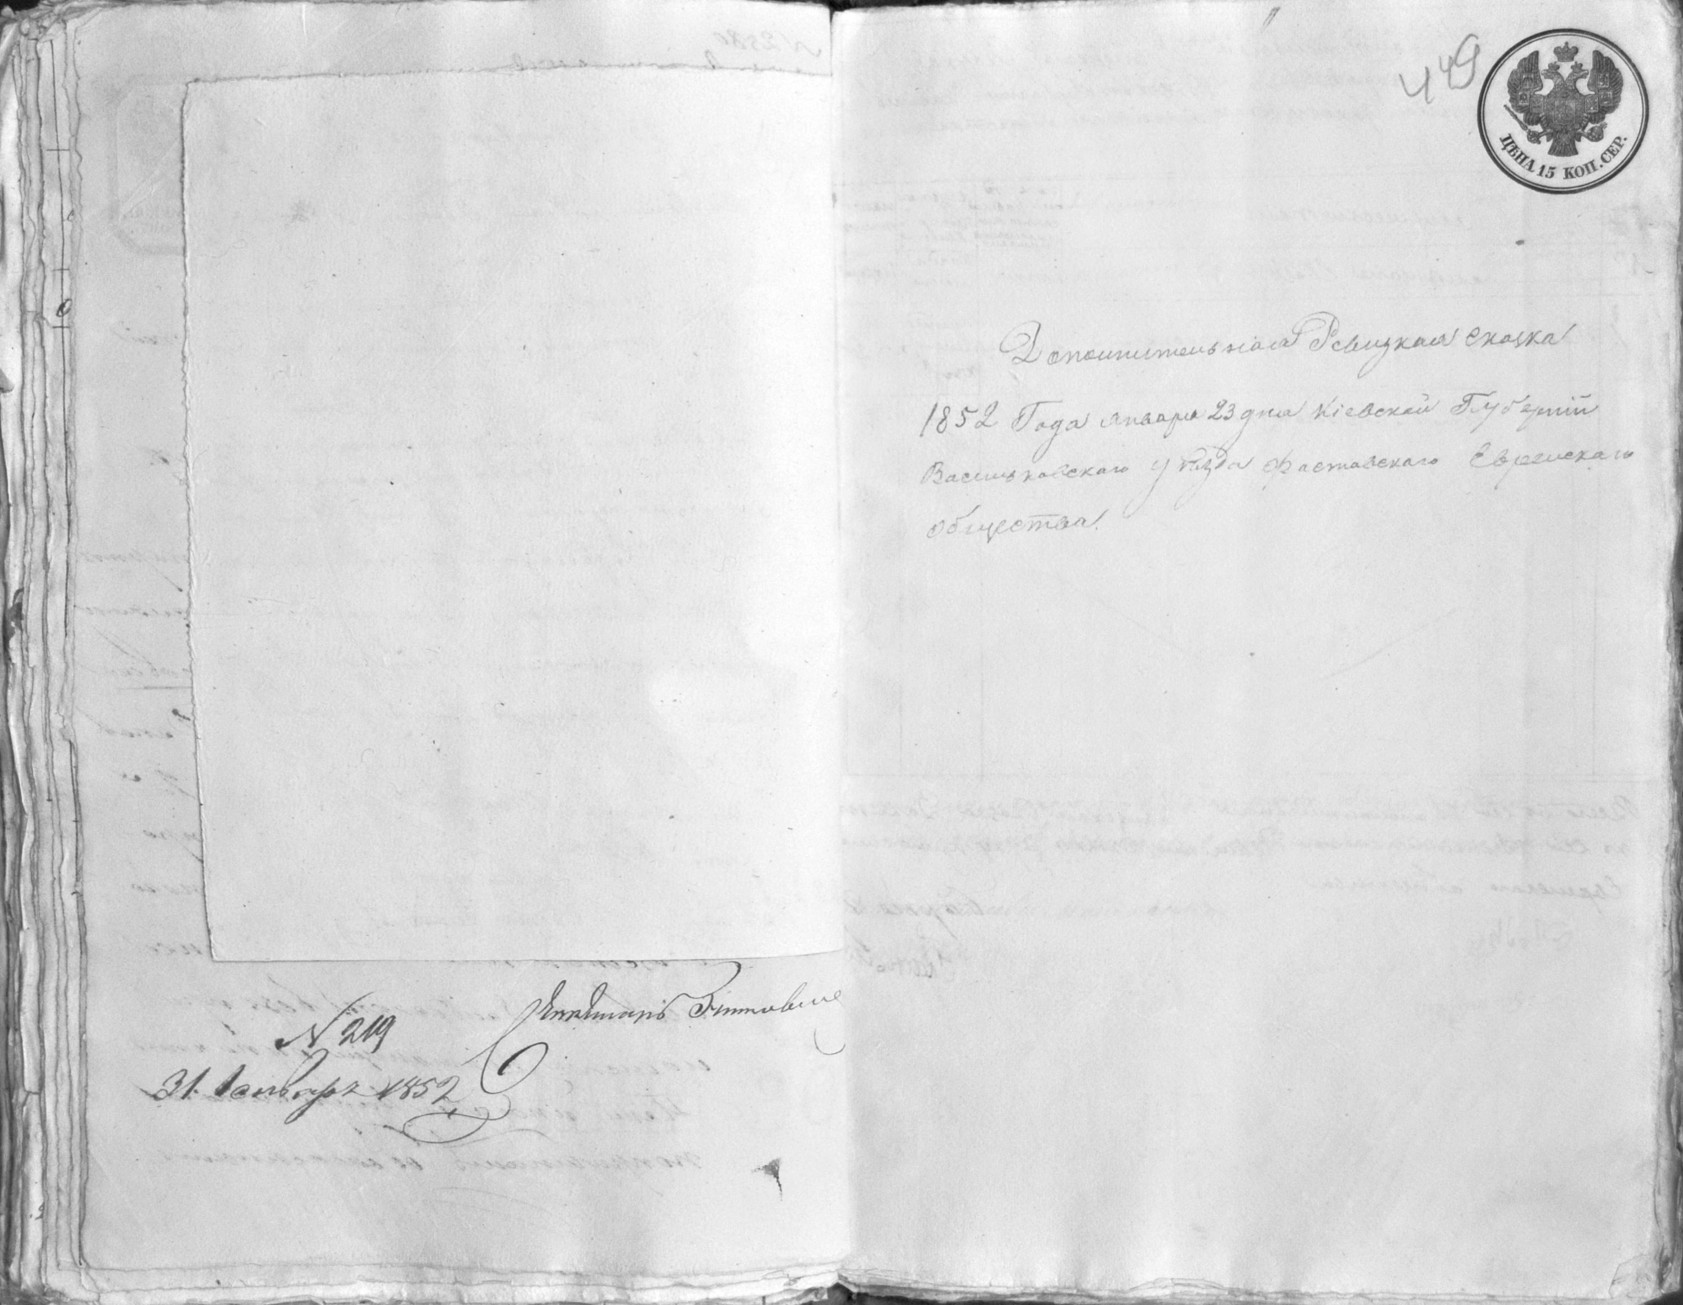 № 219
31. Января 1852
449
ЦѢНА 15 КОП. СЕР.
Дополнительная Ревизкая сказка
1852 Года января 23 дня Кіевской Губерніи
Васильковскаго уѣзда Фастовскаго Еврейскаго
общества.